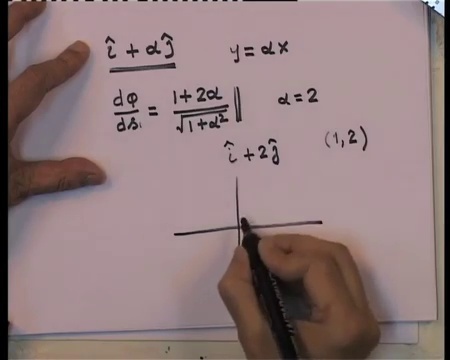 î + αĵ    y = αx
dφ/ds = (1+2α)/√(1+α²) ||    α = 2
î + 2ĵ    (1, 2)